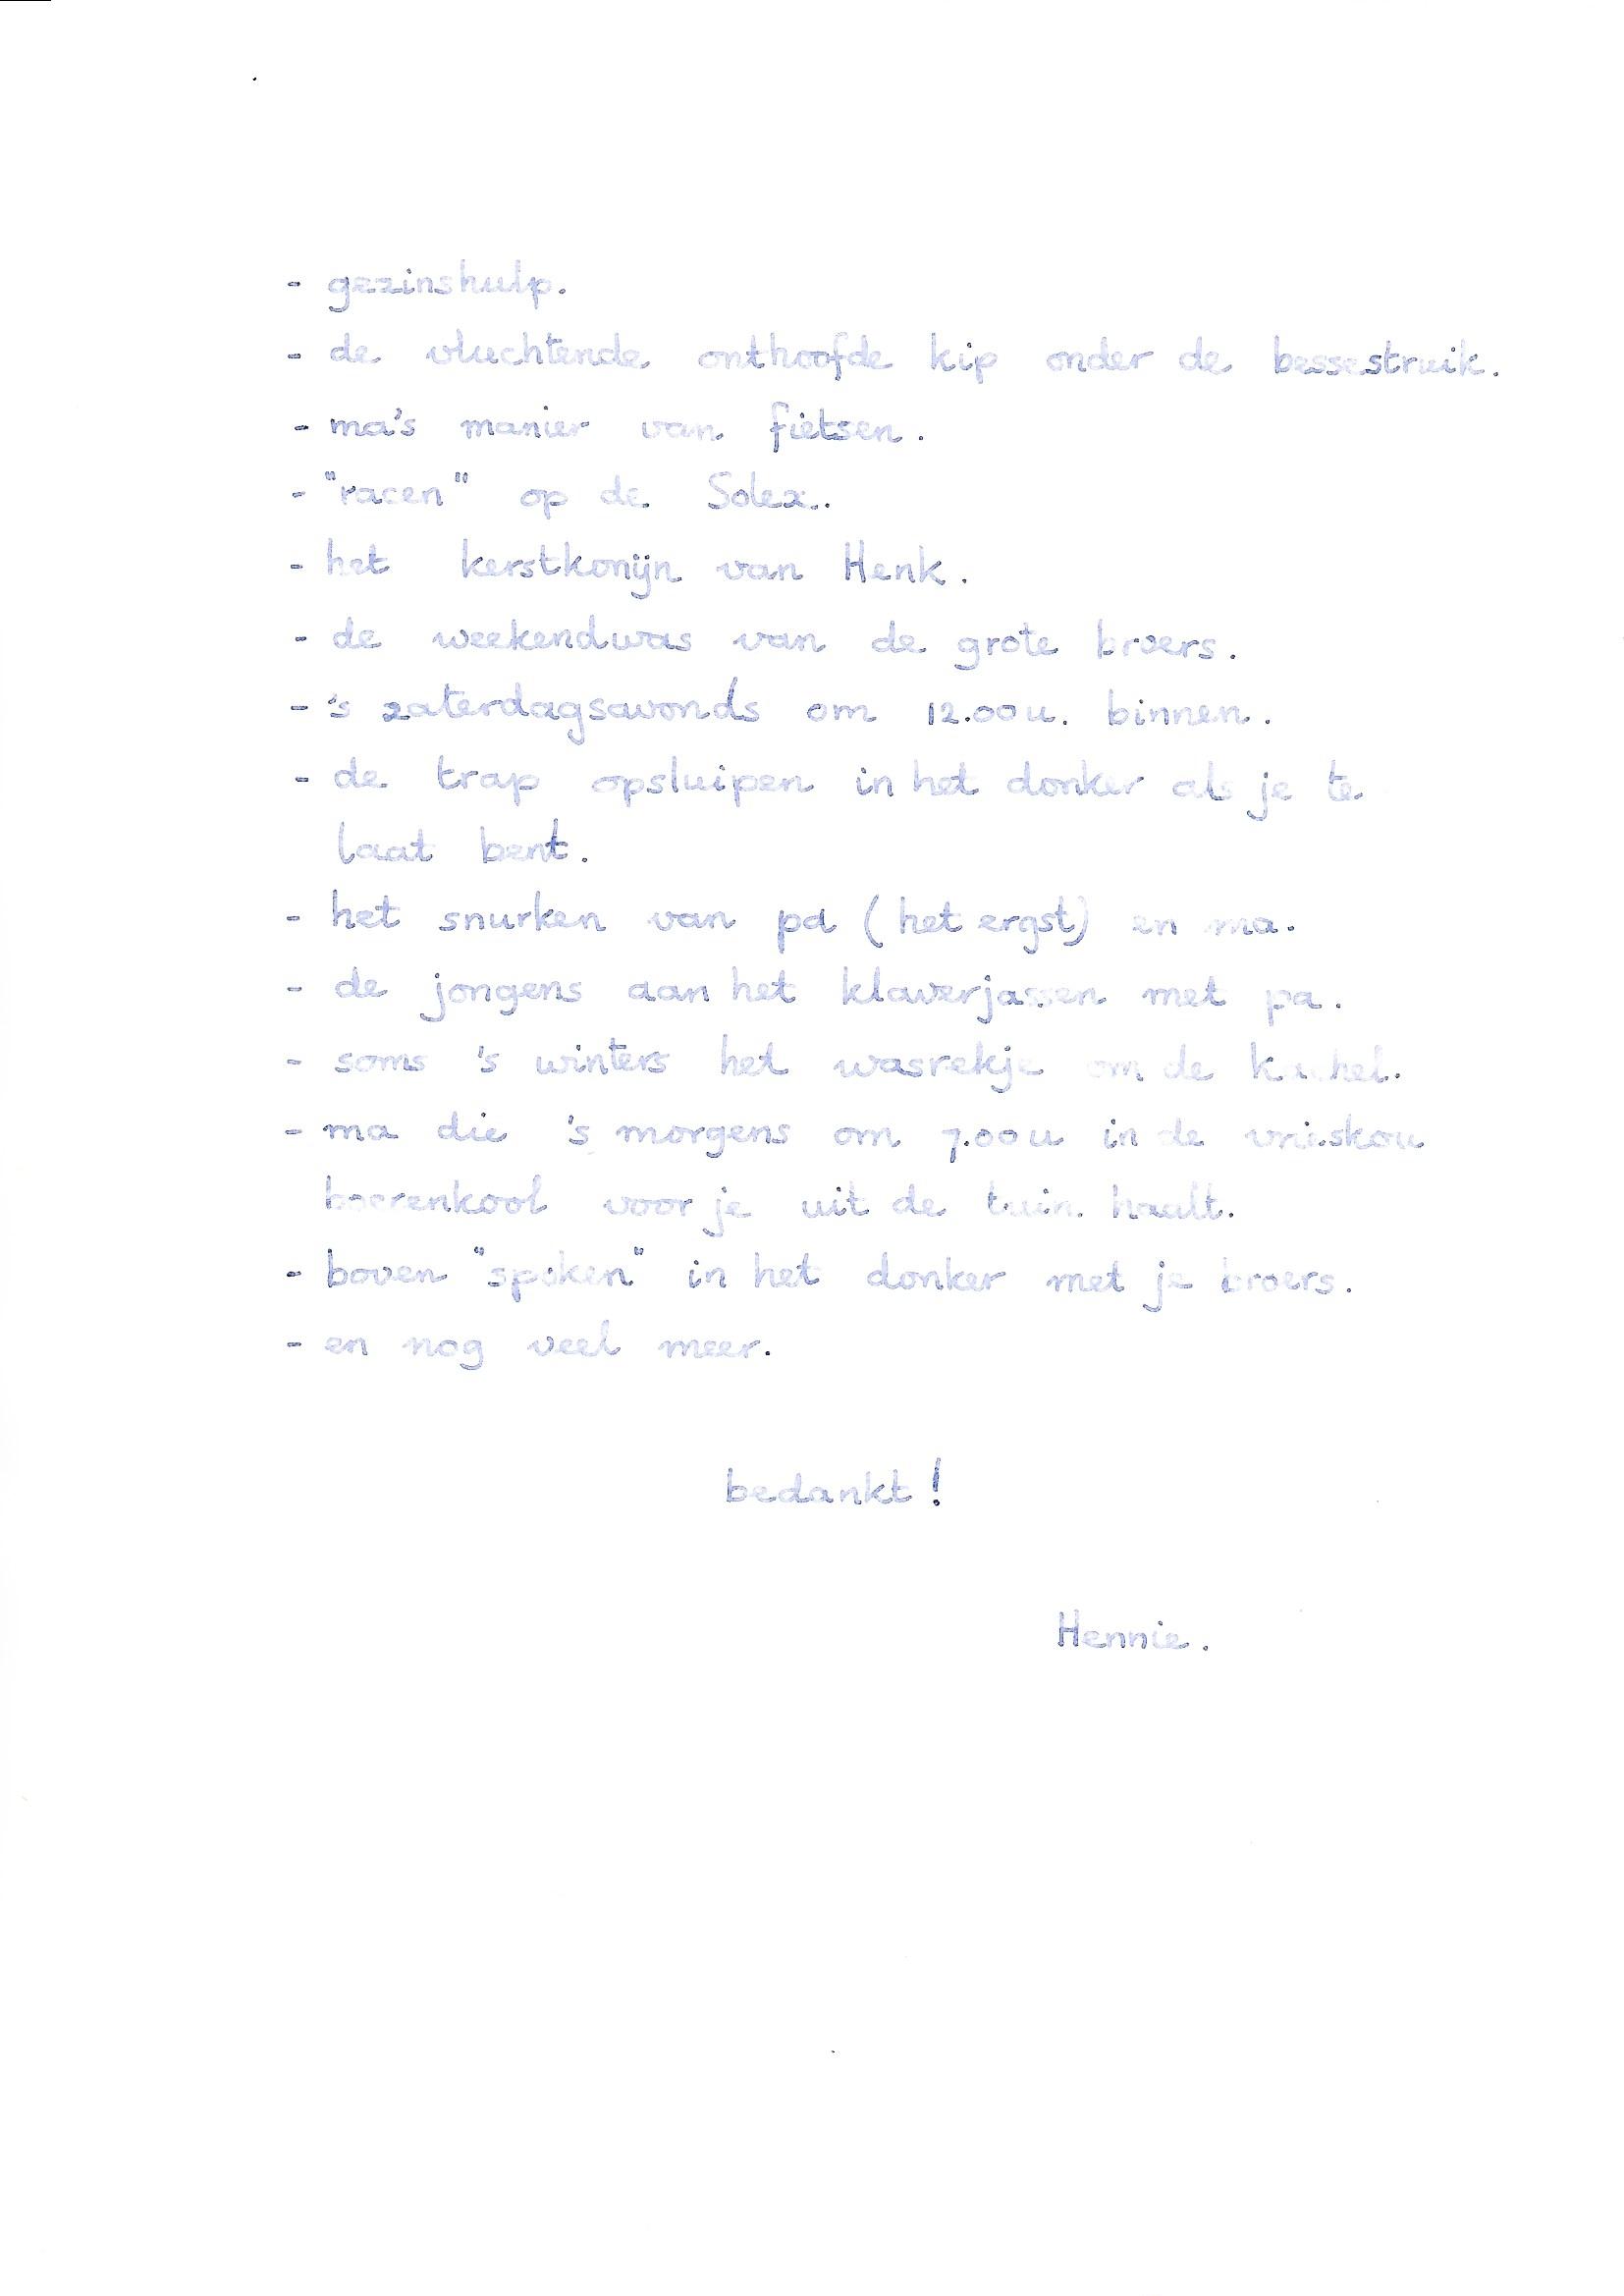 - gezinshulp.
- de vluchtende onthoofde kip onder de bessestruik.
- ma's manier van fietsen.
- "racen" op de Solex.
- het kerstkonijn van Henk.
- de weekendwas van de grote broers.
- 's zaterdagsavonds om 12.00u. binnen.
- de trap opsluipen in het donker als je te
laat bent.
- het snurken van pa (het ergst) en ma.
- de jongens aan het klaverjassen met pa.
- soms 's winters het wasrekje om de kachel.
- ma die 's morgens om 7.00u in de vrieskou
boerenkool voor je uit de tuin haalt.
- boven "spoken" in het donker met je broers.
- en nog veel meer.
bedankt!
Hennie.